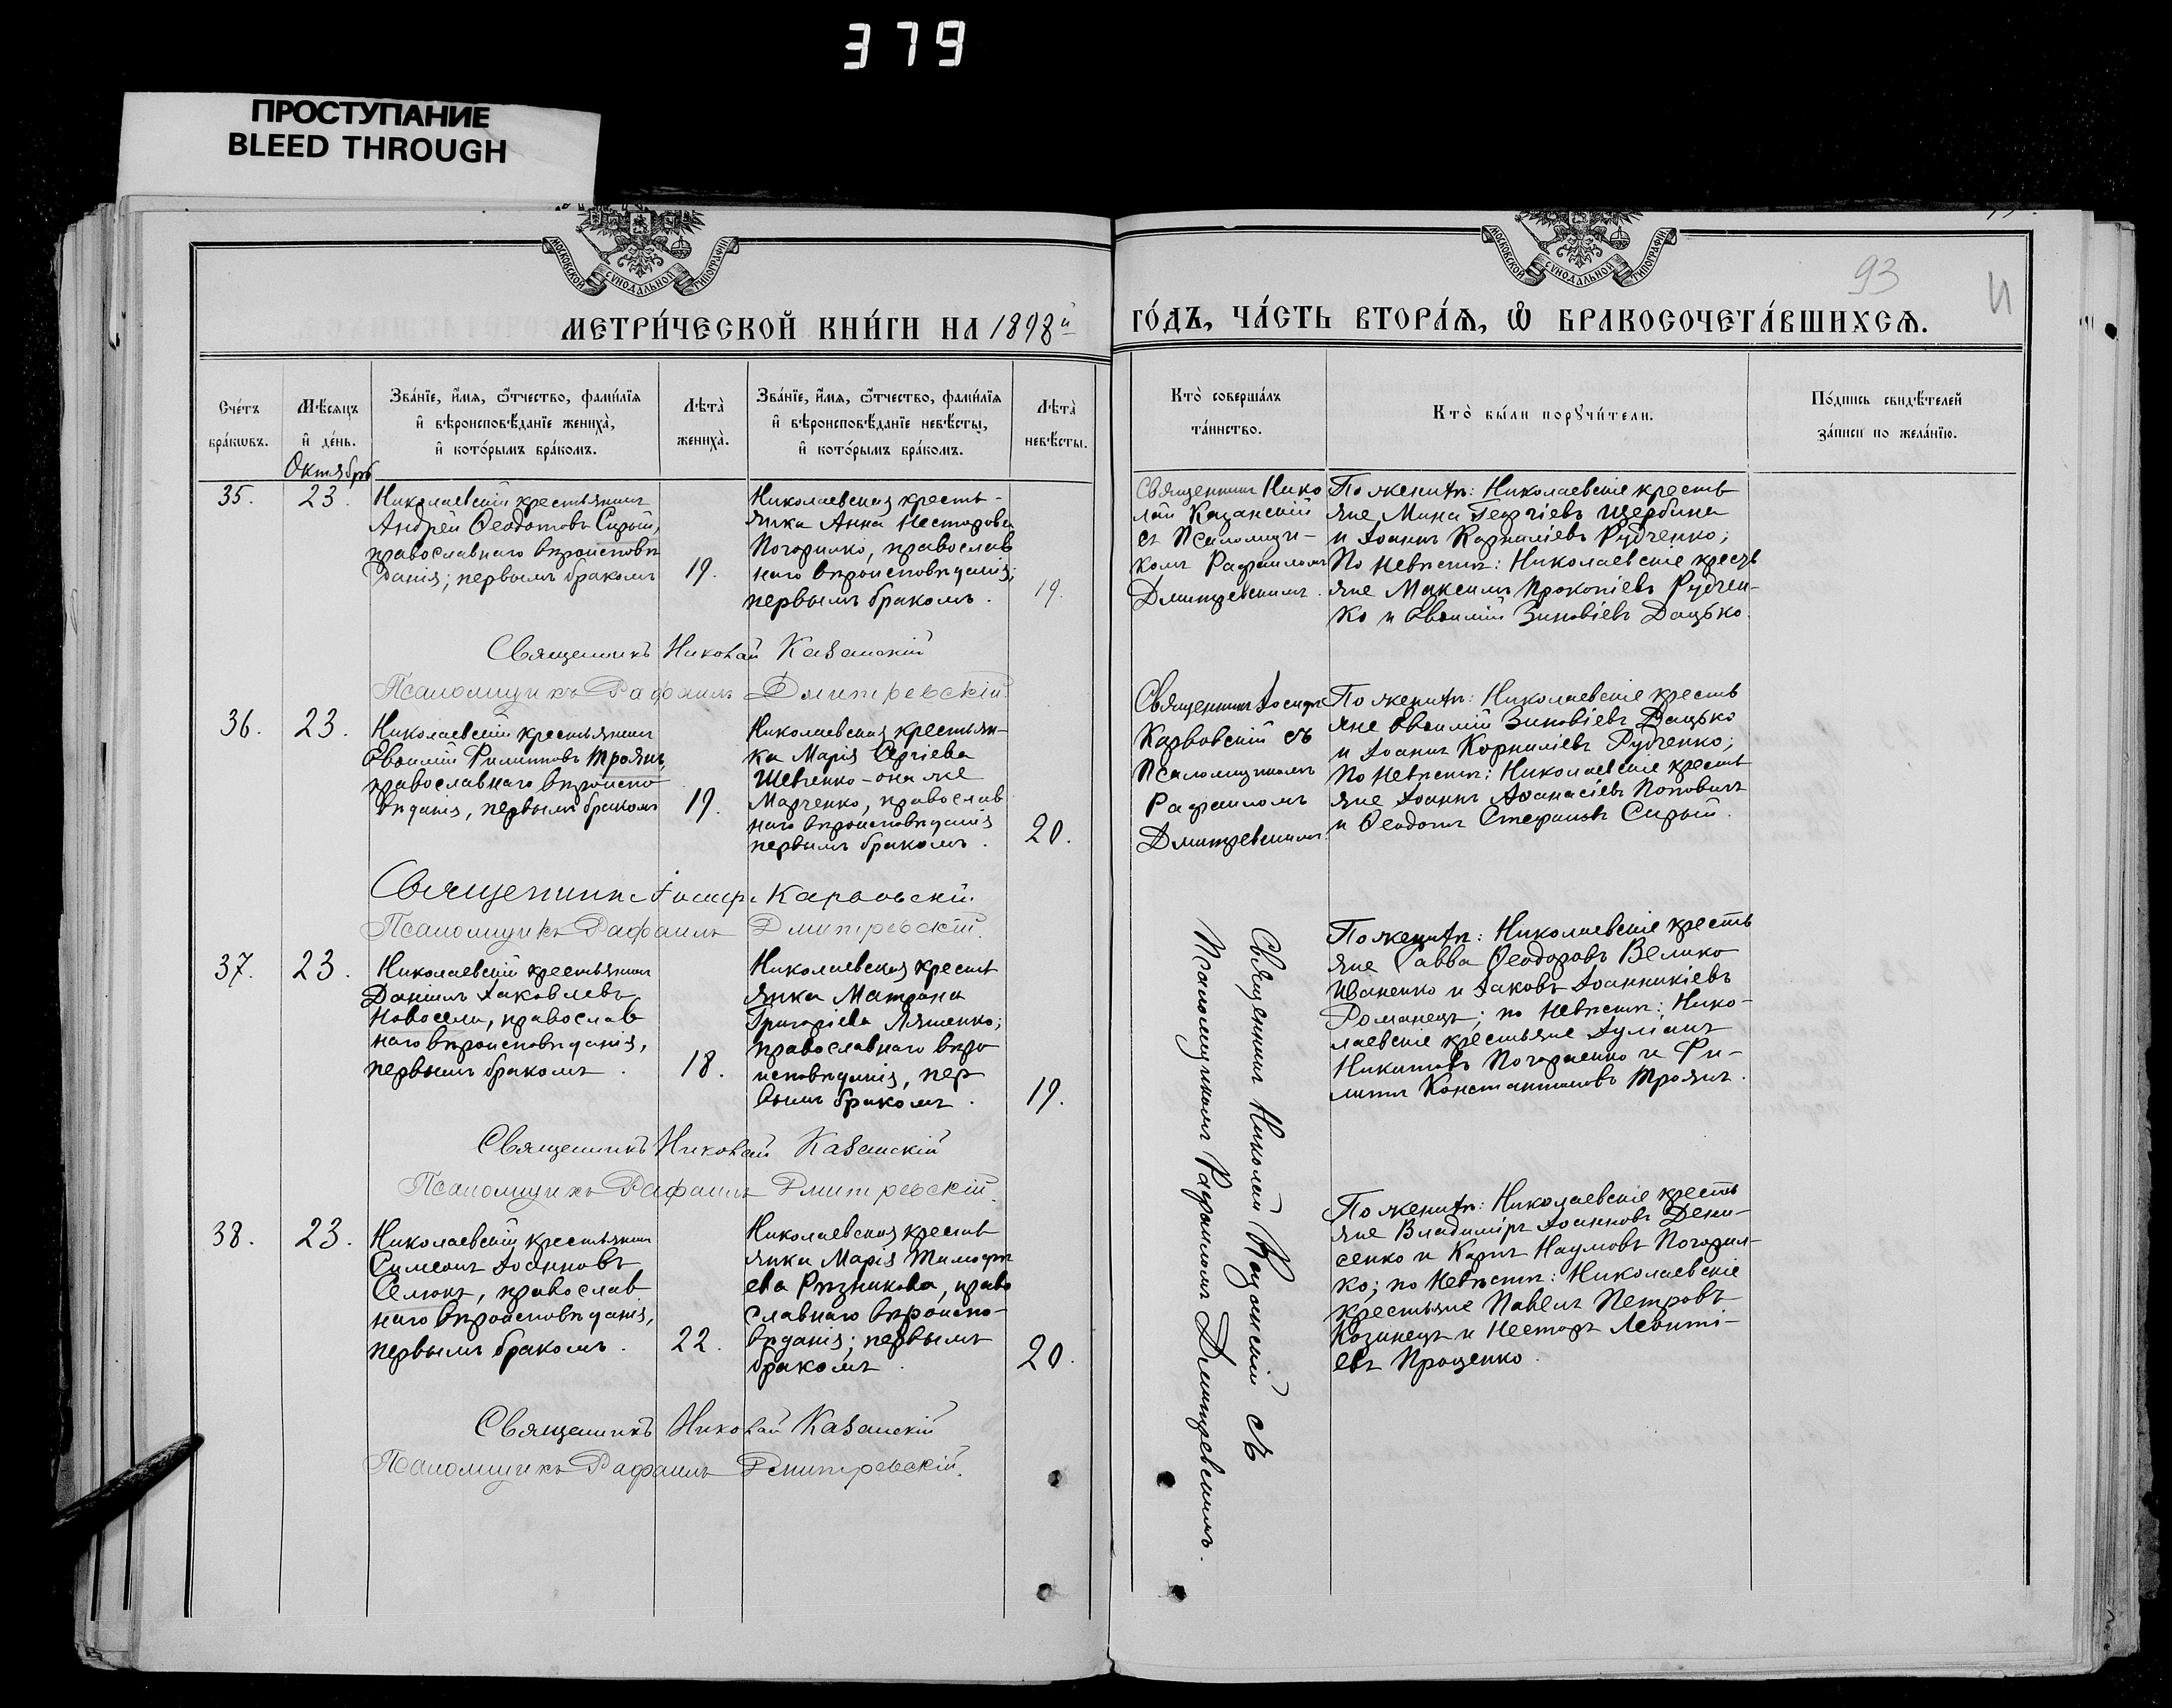 379
ПРОСТУПАНИЕ
BLEED THROUGH
МОСКОВСКОЙ СѴНОДАЛЬНОЙ ТИПОГРАФІИ
МОСКОВСКОЙ СѴНОДАЛЬНОЙ ТИПОГРАФІИ
93
МЕТРИ́ЧЕСКОЙ КНИ́ГИ НА 1898й
ГО́ДЪ, ЧА́СТЬ ВТОРА́Ѧ, Ѽ БРАКОСОЧЕТА́ВШИХСѦ.
Сче́тъ
бра́кѡвъ.
Мѣ́сяцъ
и҆ де́нь.
Октябрь
Зва́нїе, и҆́мѧ, ѻ҆́тчество, фами́лїѧ
и҆ вѣроисповѣ́данїе жениха̀,
и҆ кото́рымъ бра́комъ.
Лѣта̀
жениха̀.
Зва́нїе, и҆́мѧ, ѻ҆́тчество, фами́лїѧ
и҆ вѣроисповѣ́данїе невѣ́сты,
и҆ кото́рымъ бра́комъ.
Лѣта̀
невѣ́сты.
Кто̀ соверша́лъ
та́инство.
Кто̀ бы́ли порꙋчи́тели.
По́дпись свидѣ́телей
за́писи по жела́нїю.
35.
23.
Николаевскій крестьянинъ
Андрей Ѳеодотовъ Сирый,
православнаго вѣроисповѣ
данія; первымъ бракомъ
19.
Николаевская кресть-
янка Анна Несторова
Погорилко, православ
наго вѣроисповѣданія;
первымъ бракомъ.
19.
Священникъ Нико
лай Казанскій
съ Псаломщи-
комъ Рафаиломъ
Дмитревскимъ.
По женихѣ: Николаевскіе кресть
яне Мина Георгіевъ Щербина
и Іоаннъ Корниліевъ Рудченко;
По невѣстѣ: Николаевскіе кресть
яне Максимъ Прокопіевъ Рудчен-
ко и Евѳимій Зиновіевъ Дацько.
Священникъ Николай Казанскій
Псаломщикъ Рафаилъ Дмитревскій.
36.
23.
Николаевскій крестьянинъ
Евѳимій Филипповъ Троянъ,
православнаго вѣроиспо
вѣданія, первымъ бракомъ
19.
Николаевская крестьян-
ка Марія Сергіева
Шевченко - она же
Марченко, православ
наго вѣроисповѣданія
первымъ бракомъ.
20.
Священникъ Іосифъ
Карвовскій съ
Псаломщикомъ
Рафаиломъ
Дмитревскимъ
По женихѣ: Николаевскіе кресть
яне Евѳимій Зиновіевъ Дацько
и Іоаннъ Корниліевъ Рудченко;
По невѣстѣ: Николаевскіе кресть
яне Іоаннъ Аѳанасіевъ Поповичъ
и Ѳеодотъ Стефановъ Сирый.
Священникъ Іосифъ Карвовскій.
Псаломщикъ Рафаилъ Дмитревскій.
37.
23.
Николаевскій крестьянинъ
Даніилъ Іаковлевъ
Новосели, православ
наго вѣроисповѣданія,
первымъ бракомъ.
18.
Николаевская кресть
янка Матрона
Григоріева Ляшенко;
православнаго вѣро
исповѣданія, пер
вымъ бракомъ.
19.
Священникъ Николай Казанскій съ
Псаломщикомъ Рафаиломъ Дмитревскимъ.
По женихѣ: Николаевскіе кресть
яне Савва Ѳеодоровъ Велико
Иваненко и Іаковъ Іоанникіевъ
Романецъ; по невѣстѣ: Нико-
лаевскіе крестьяне Іуліанъ
Никитовъ Погорленко и Фи-
липпъ Константиновъ Троянъ.
Священникъ Николай Казанскій
Псаломщикъ Рафаилъ Дмитревскій.
38.
23.
Николаевскій крестьянинъ
Симеонъ Іоанновъ
Семокъ, православ
наго вѣроисповѣданія,
первымъ бракомъ.
22.
Николаевская кресть
янка Марія Тимоѳе
ева Рѣзникова, право
славнаго вѣроиспо-
вѣданія; первымъ
бракомъ.
20.
По женихѣ: Николаевскіе кресть
яне Владиміръ Іоанновъ Дени-
сенко и Карпъ Наумовъ Погорил-
ко; по невѣстѣ: Николаевскіе
крестьяне Павелъ Петровъ
Козинецъ и Несторъ Леонті-
евъ Проценко.
Священникъ Николай Казанскій
Псаломщикъ Рафаилъ Дмитревскій.